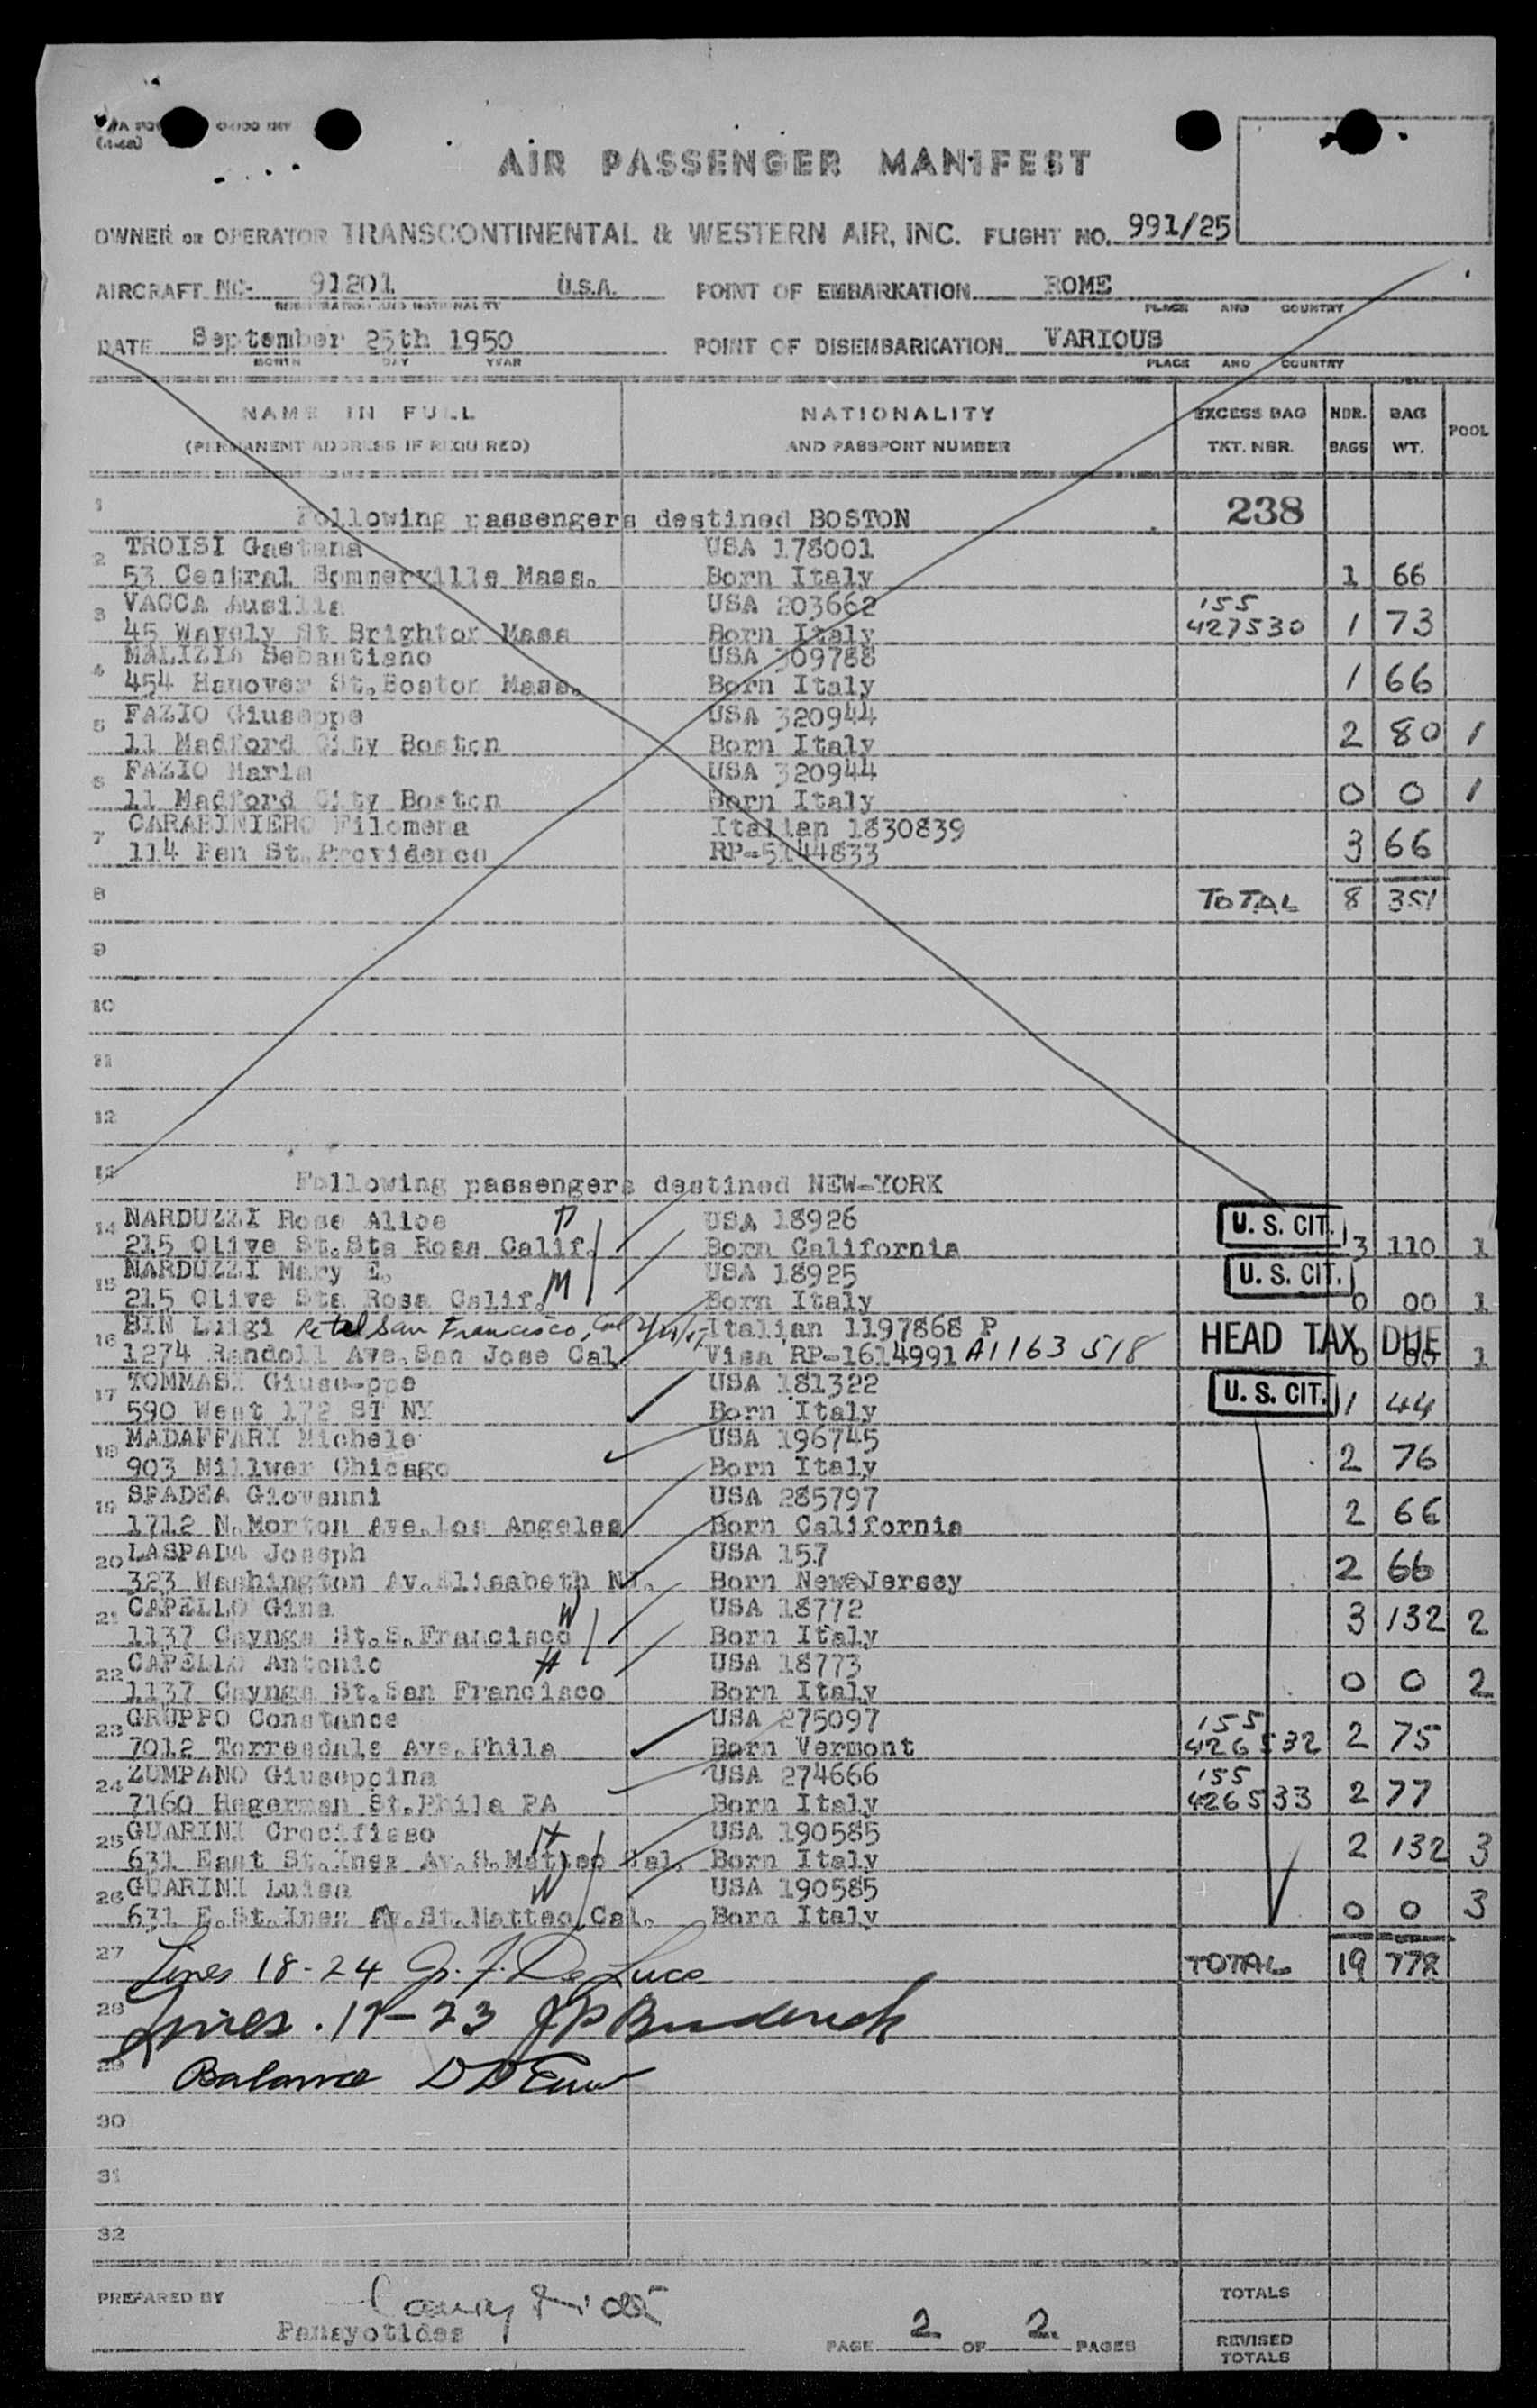 (4-48)
AIR PASSENGER MANIFEST
OWNER OR OPERATOR TRANSCONTINENTAL & WESTERN AIR, INC. FLIGHT NO. 991/25
AIRCRAFT NC- 91201 U.S.A. POINT OF EMBARKATION ROME
REGISTRATION AND NATIONALITY PLACE AND COUNTRY
DATE September 25th 1950 POINT OF DISEMBARKATION VARIOUS
MONTH DAY YEAR PLACE AND COUNTRY
NAME IN FULL NATIONALITY EXCESS BAG NBR. BAG POOL
(PERMANENT ADDRESS IF REQUIRED) AND PASSPORT NUMBER TKT. NBR. BAGS WT.
1 Following passengers destined BOSTON 238
2 TROISI Gaetana USA 178001
53 Central Sommerville Mass. Born Italy 1 66
3 VACCA Ausilia USA 203662 155
45 Wavely St Brighton Mass Born Italy 427530 1 73
4 MALIZIA Sebastiano USA 309788
454 Hanover St. Boston Mass. Born Italy 1 66
5 FAZIO Giuseppe USA 320944
11 Madford City Boston Born Italy 2 80 1
6 FAZIO Maria USA 320944
11 Madford City Boston Born Italy 0 0 1
7 CARABINIERO Filomena Italian 1830839
114 Pen St. Providence RP-5144833 3 66
8 TOTAL 8 351
9
10
11
12
13 Following passengers destined NEW-YORK
14 NARDUZZI Rose Alice D USA 18926 U. S. CIT.
215 Olive St. Sta Rosa Calif. Born California 3 110 1
15 NARDUZZI Mary E. M USA 18925 U. S. CIT.
215 Olive Sta Rosa Calif. Born Italy 0 00 1
16 BIN Luigi San Francisco, Italian 1197868 P HEAD TAX DUE
1274 Randoll Ave. San Jose Cal Visa RP-1614991 A1163 518 0 00 1
17 TOMMASI Giuse-ppe USA 181322 U. S. CIT.
590 West 172 ST NY Born Italy 1 44
18 MADAFFARI Michele USA 196745
903 Millwer Chicago Born Italy 2 76
19 SPADEA Giovanni USA 285797
1712 N. Morton Ave. Los Angeles Born California 2 66
20 LASPADA Joseph USA 157
323 Washington Av. Elisabeth NJ. Born New Jersey 2 66
21 CAPELLO Gina W USA 18772
1137 Caynga St. S. Francisco Born Italy 3 132 2
22 CAPELLO Antonio H USA 18773
1137 Caynga St. San Francisco Born Italy 0 0 2
23 GRUPPO Constance USA 275097 155
7012 Torresdale Ave. Phila Born Vermont 426532 2 75
24 ZUMPANO Giuseppina USA 274666 155
7160 Hegerman St. Phila PA Born Italy 426533 2 77
25 GUARINI Crocifisso H USA 190585
631 East St. Inez Av. S. Matteo Cal. Born Italy 2 132 3
26 GUARINI Luisa W USA 190585
631 E. St. Inez Av. St. Matteo Cal. Born Italy 0 0 3
27 Lines 18-24 G. J. De Luca TOTAL 19 778
28 Lines. 17-23 JP Broderick
29 Balance
30
31
32
PREPARED BY
Panayotides
PAGE 2 OF 2 PAGES
TOTALS
REVISED
TOTALS